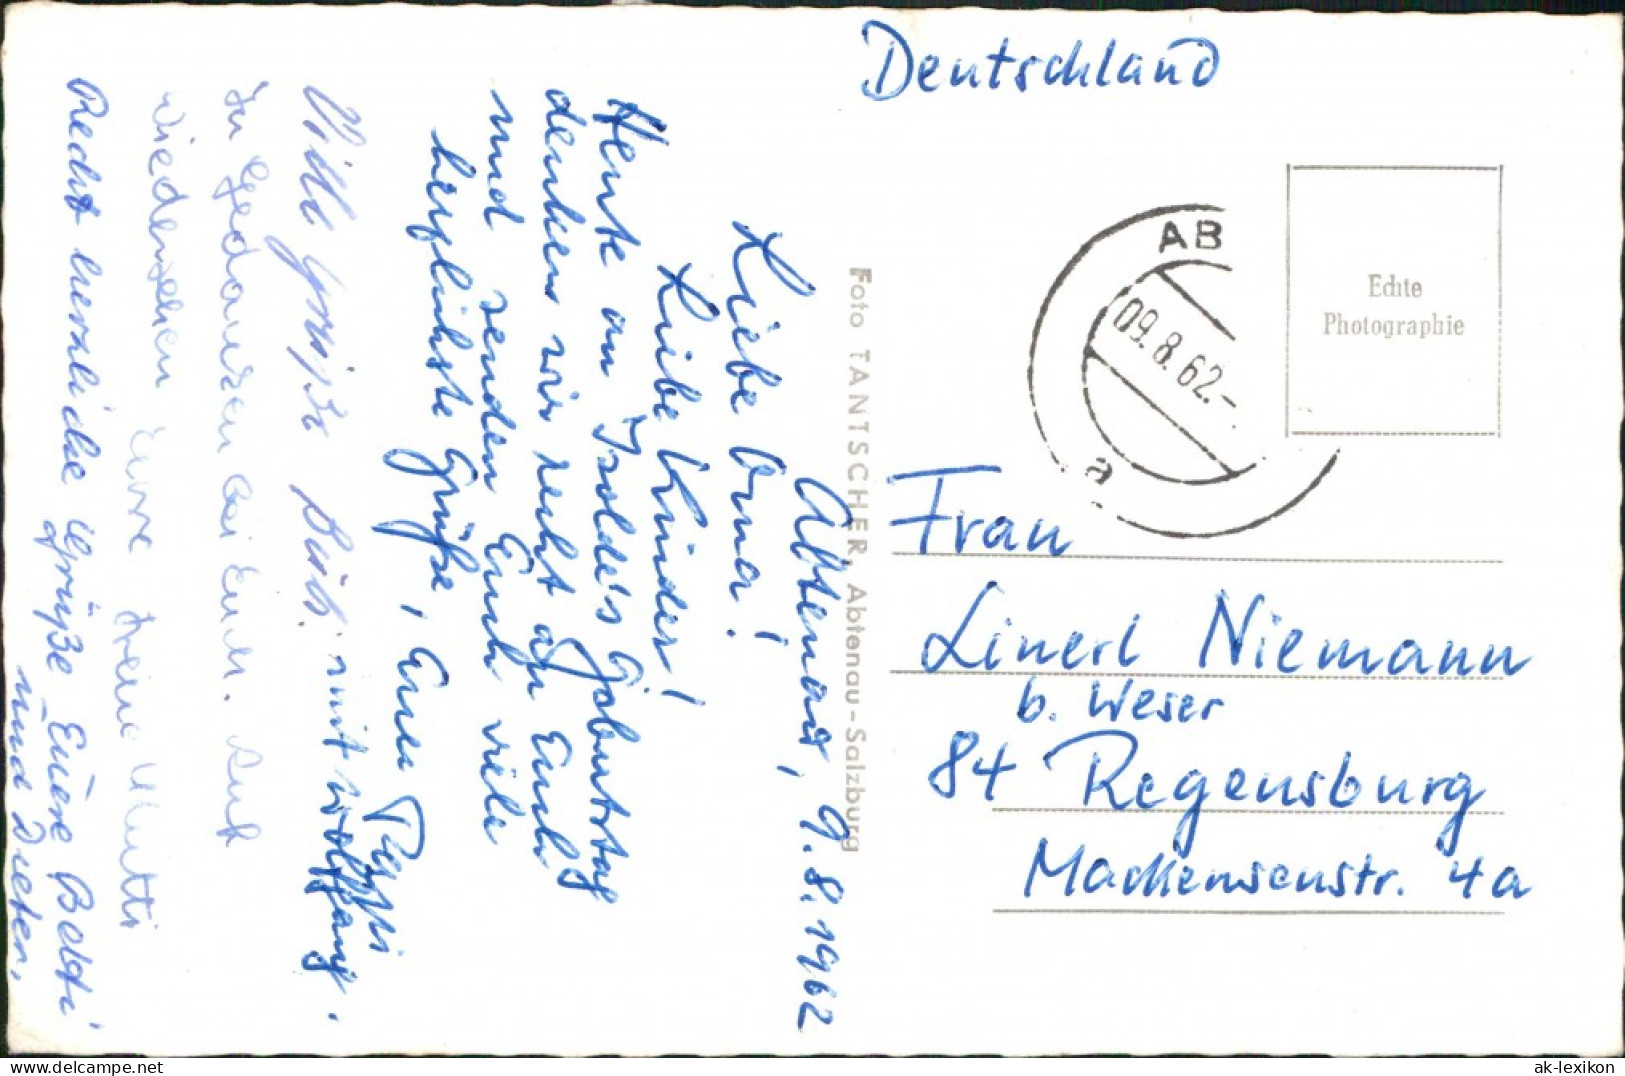 Deutschland
AB
09.8.62.-
a
Echte
Photographie
Foto TANTSCHER, Abtenau-Salzburg
Frau
Linerl Niemann
b. Weser
84 Regensburg
Mackensenstr. 4a
Abtenau, 9.8.1962
Liebe Oma!
Liebe Kinder!
Heute an Isolde's Geburtstag
denken wir recht an Euch
und senden Euch viele
herzlichste Grüße, Euer Peppi
mit Wolfgang.
Viele Grüße
In Gedanken bei Euch.
Wiedersehen Eure Mutti
Recht herzliche Grüße Euere Betti
und Dieter.